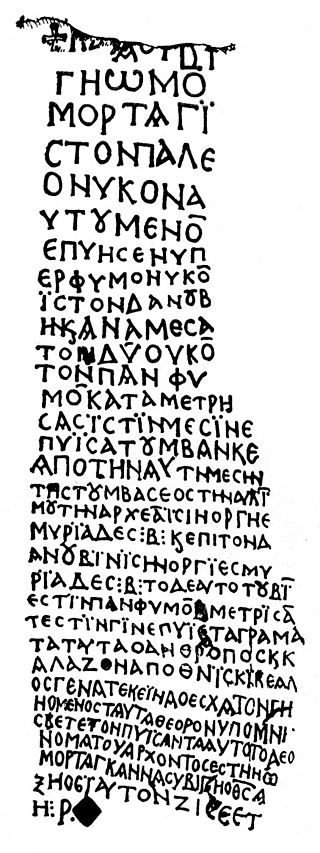 ΓΗѠΜΟ
ΜΟΡΤΑΓΪ
СΤΟΝΠΑΛΕ
ΟΝΥΚΟΝΑ
ΥΤȢΜΕΝΟ̅
ΕΠΥΗСΕΝΥΠ
ΕΡΦΥΜΟΝΥΚΟ̅
ΪСΤΟΝΔΑΝȢΒ
ΗΝϗΑΝΑΜΕСΑ
ΤΟΝΔΥΟΥΚΟ̅
ΤΟΝΠΑΝΦΥ
ΜΟ̅ΚΑΤΑΜΕΤΡΗ
СΑСΪСΤΪΝΜΕСΪΝΕ
ΠΥΪСΑΤȢΜΒΑΝΚΕ
ΑΠΟΤΗΝΑΥΤΗΝΜΕСΗΝ
ΤΗСΤȢΜΒΑСΕΟСΤΗΝΑΥΛΪ
ΜΟΥΤΗΝΑΡΧΕΑΪСΙΝΟΡΓΗΕ
ΜΥΡΪΑΔΕС⁝Β⁝ϗΕΠΙΤΟΝΔΑ
ΝȢΒΙΝΪСΗΝΟΡΓΪΕСΜΥ
ΡΪΑΔΕС⁝Β⁝ΤΟΔΕΑΥΤΟΤȢΒΪ
ΕСΤΪΝΠΑΝΦΥΜΟ̅ϗΜΕΤΡΪСΑ̅
ΤΕСΤΪΝΓΪΝΕΠΥΪСΑΤΑΓΡΑΜΑ
ΤΑΤΑΥΤΑΟΑΝΘΡΟΠΟСϗΚ
ΑΛΑΖΟΝΑΠΟΘΝΪСΚΪϗΑΛ
ΟСΓΕΝΑΤΕΚΕΪΝΑΟΕСΧΑΤΟΝΓΗ
ΝΟΜΕΝΟСΤΑΥΤΑΘΕΟΡΟΝΥΠΟΜΝΙ
СΚΕΤΕΤΟΝΠΥΪСΑΝΤΑΑΥΤΟΤΟΔΕΟ
ΝΟΜΑΤΟΥΑΡΧΟΝΤΟСΕСΤΗΝѠ
ΜΟΡΤΑΓΚΑΝΝΑСΥΒΙΓΗΟΘСΑ
ΞΗΟСΪΑΥΤΟΝΖΙСΕΕΤ
Η⁝Ρ